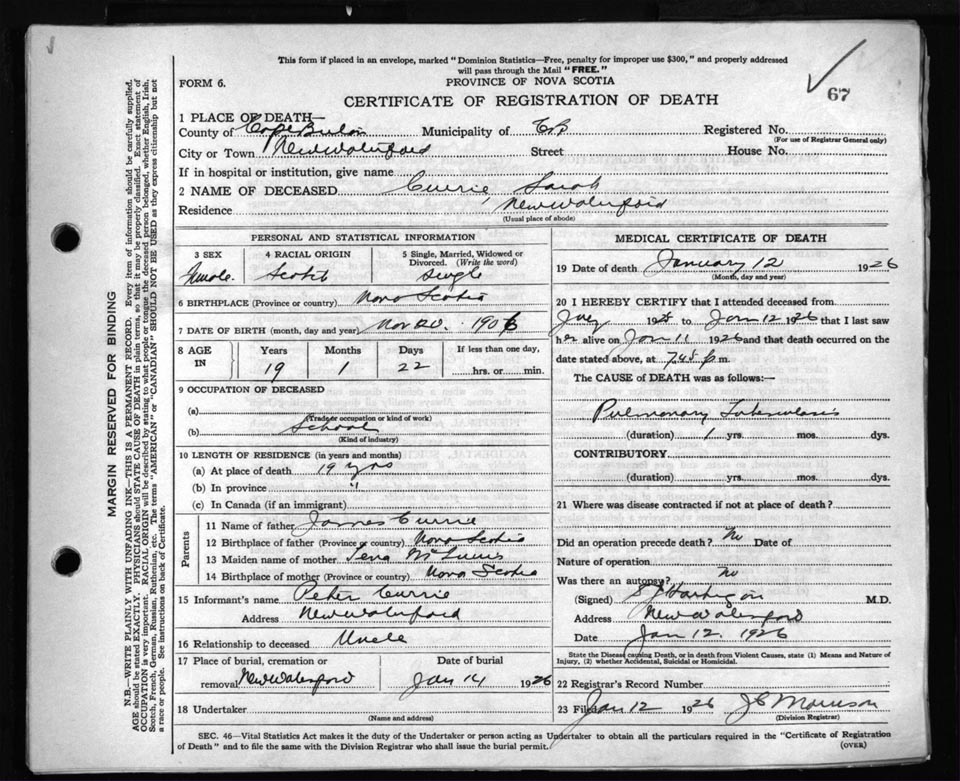 This form if placed in an envelope, marked "Dominion Statistics—Free, penalty for improper use $300," and properly addressed
will pass through the Mail "FREE."
FORM 6.
PROVINCE OF NOVA SCOTIA
67
CERTIFICATE OF REGISTRATION OF DEATH
1 PLACE OF DEATH—
County of Cape Breton Municipality of C.B Registered No.
(For use of Registrar General only)
City or Town New Waterford Street House No.
If in hospital or institution, give name
2 NAME OF DECEASED Currie Sarah
Residence New Waterford
(Usual place of abode)
PERSONAL AND STATISTICAL INFORMATION
3 SEX 4 RACIAL ORIGIN 5 Single, Married, Widowed or
Divorced. (Write the word)
Female Scotch Single
6 BIRTHPLACE (Province or country) Nova Scotia
7 DATE OF BIRTH (month, day and year) Nov 20. 1906
8 AGE IN Years Months Days If less than one day,
19 1 22 hrs. or min.
9 OCCUPATION OF DECEASED
(a)
(Trade or occupation or kind of work)
(b) School
(Kind of industry)
10 LENGTH OF RESIDENCE (in years and months)
(a) At place of death 19 yrs
(b) In province "
(c) In Canada (if an immigrant)
Parents
11 Name of father James Currie
12 Birthplace of father (Province or country) Nova Scotia
13 Maiden name of mother Tena McInnis
14 Birthplace of mother (Province or country) Nova Scotia
15 Informant's name Peter Currie
Address New Waterford
16 Relationship to deceased Uncle
17 Place of burial, cremation or Date of burial
removal New Waterford Jan 14 1926
18 Undertaker
(Name and address)
MEDICAL CERTIFICATE OF DEATH
19 Date of death January 12 1926
(Month, day and year)
20 I HEREBY CERTIFY that I attended deceased from
July 1925 to Jan 12 1926 that I last saw
her alive on Jan 11 1926 and that death occurred on the
date stated above, at 7.45 p m.
The CAUSE OF DEATH was as follows:—
Pulmonary Tuberculosis
(duration) 1 yrs. mos. dys.
CONTRIBUTORY
(duration) yrs. mos. dys.
21 Where was disease contracted if not at place of death?
Did an operation precede death? No Date of
Nature of operation
Was there an autopsy? No
(Signed) M.D.
Address New Waterford
Date Jan 12. 1926
State the Disease causing Death, or in death from Violent Causes, state (1) Means and Nature of
Injury, (2) whether Accidental, Suicidal or Homicidal.
22 Registrar's Record Number
23 Filed Jan 12 1926 J C Morrison
(Division Registrar)
SEC. 46—Vital Statistics Act makes it the duty of the Undertaker or person acting as Undertaker to obtain all the particulars required in the "Certificate of Registration
of Death" and to file the same with the Division Registrar who shall issue the burial permit.
(OVER)
MARGIN RESERVED FOR BINDING
N.B.—WRITE PLAINLY WITH UNFADING INK—THIS IS A PERMANENT RECORD. Every item of information should be carefully supplied.
AGE should be stated EXACTLY. PHYSICIANS should STATE CAUSE OF DEATH in plain terms, so that it may be properly classified. Exact statement of
OCCUPATION is very important. RACIAL ORIGIN will be described by stating to what people or tongue the deceased person belonged, whether English, Irish,
Scotch, French, German, Russian, Ruthenian, etc. The terms "AMERICAN" or "CANADIAN" SHOULD NOT BE USED as they express citizenship but not
a race or people. See instructions on back of Certificate.